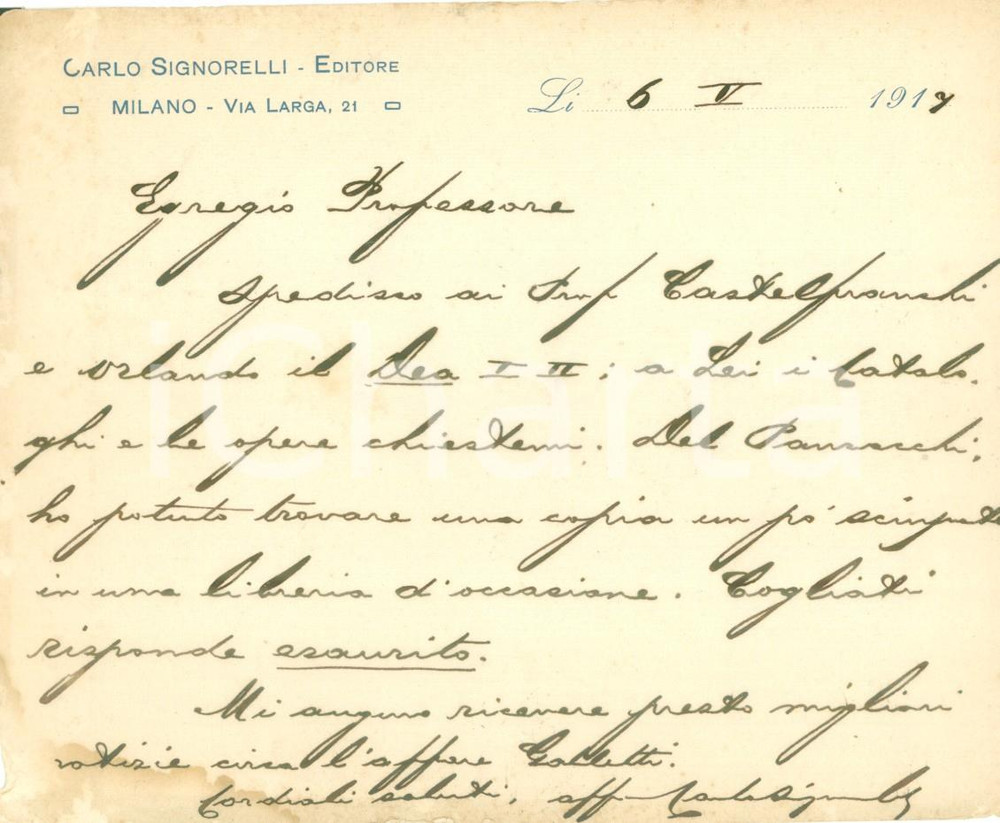 CARLO SIGNORELLI - EDITORE
MILANO - VIA LARGA, 21
Li 6 V 1917
Egregio Professore
Spedisco ai Prof Castelfranchi
e Orlando il Dea I II; a Lei i catalo.
ghi e le opere chiestemi. Del Panzacchi,
ho potuto trovare una copia un pò sciupata
in una libreria d'occasione. Cogliati
risponde esaurito.
Mi auguro ricevere presto migliori
notizie circa l'affare Galletti.
Cordiali saluti, aff Carlo Signorelli
iCharta